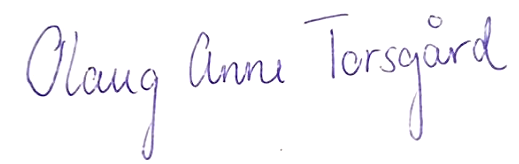 Olaug Anne Torsgård